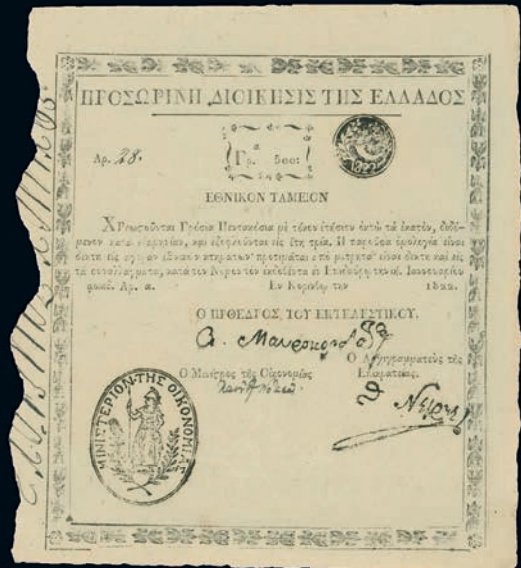 ΠΡΟΣΩΡΙΝΗ ΔΙΟΙΚΗΣΙΣ ΤΗΣ ΕΛΛΑΔΟΣ
Αρ. 28.
Γρ. 500:
1822
ΕΘΝΙΚΟΝ ΤΑΜΕΙΟΝ
ΧΡεωςοῦνται Γρόσια Πεντακόσια μὲ τόκον ἐτήσιον ὀκτὼ τὰ ἑκατὸν, διδόμενον κατὰ
καὶ ἐξοφλοῦνται εἰς ἔτη τρία. Η παροῦσα ὁμολογία εἶναι
δεκτὴ εἰς ἀγορὰν ἐθνικῶν κτημάτων· προτιμᾶται
εἶναι δεκτὴ καὶ εἰς
κατὰ τὸν Νόμον τὸν ἐκδοθέντα ἐν Επιδαύρῳ τὴν
Ιαννουαρίου
Αρ. α. Εν Κορίνθῳ τὴν 1822.
Ο ΠΡΟΕΔΡΟΣ ΤΟΥ ΕΚΤΕΛΕΣΤΙΚΟΥ.
Α. Μαυροκορδατος
Ο Μινίςρος τῆς Οἰκονομίας
Ο Αρχιγραμματεὺς τῆς
Επικρατείας.
Θ Νέγρης
ΜΙΝΙΣΤΕΡΙΟΝ ΤΗΣ ΟΙΚΟΝΟΜΙΑΣ